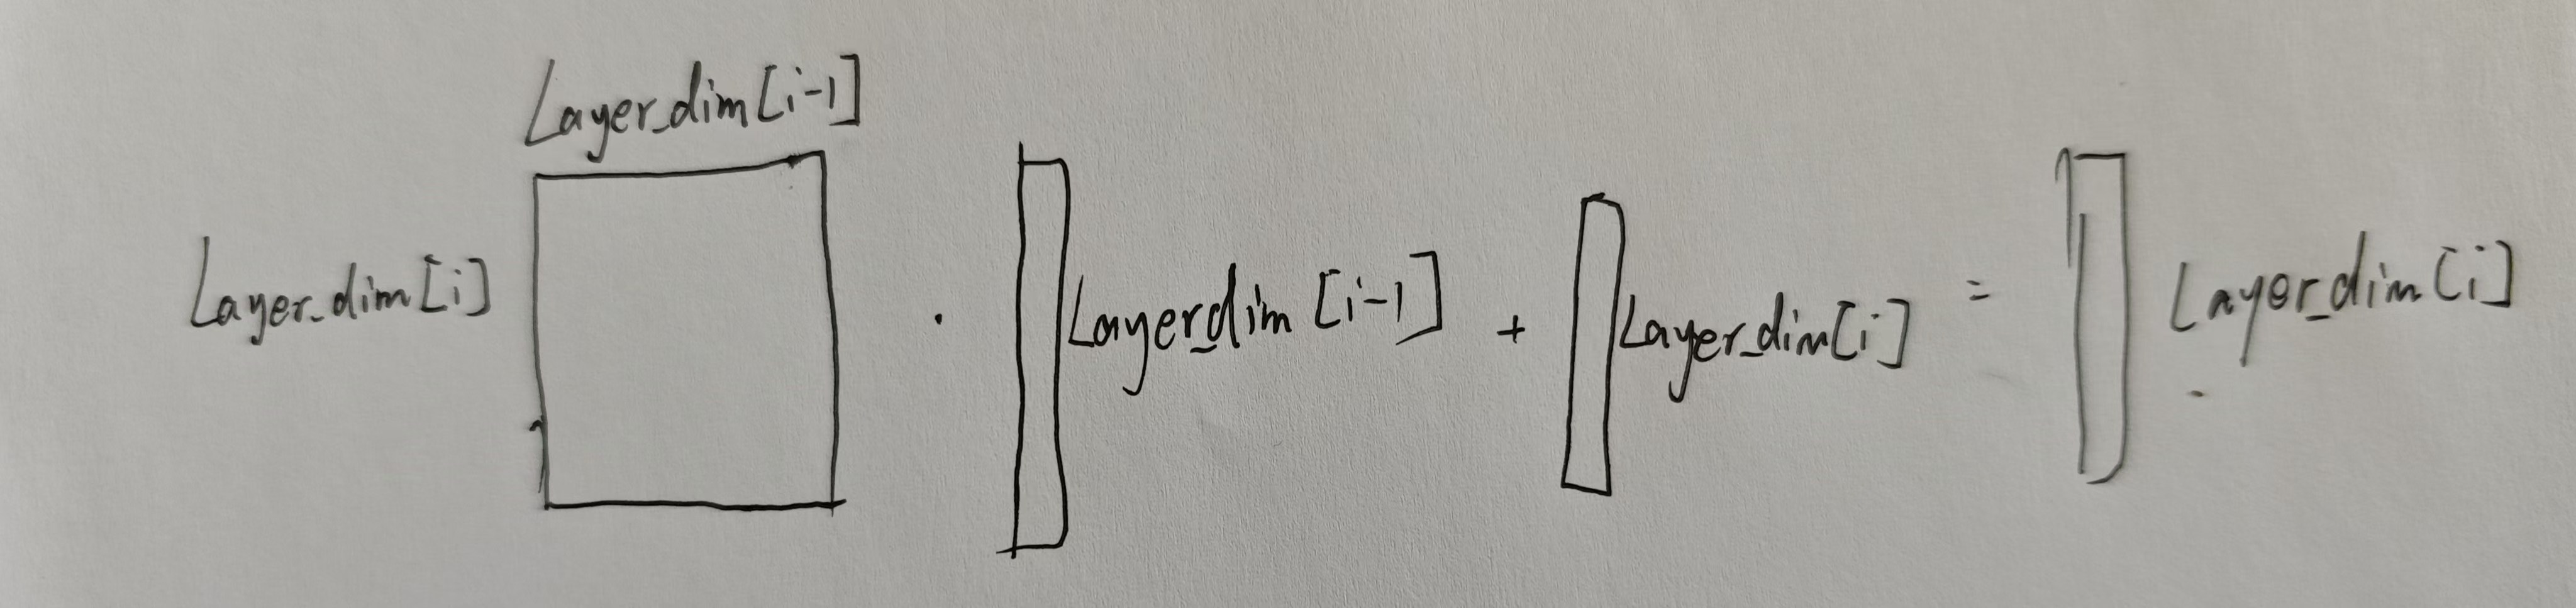 Layer_dim[i-1]
Layer_dim[i] · Layer_dim[i-1] + Layer_dim[i] = Layer_dim[i]